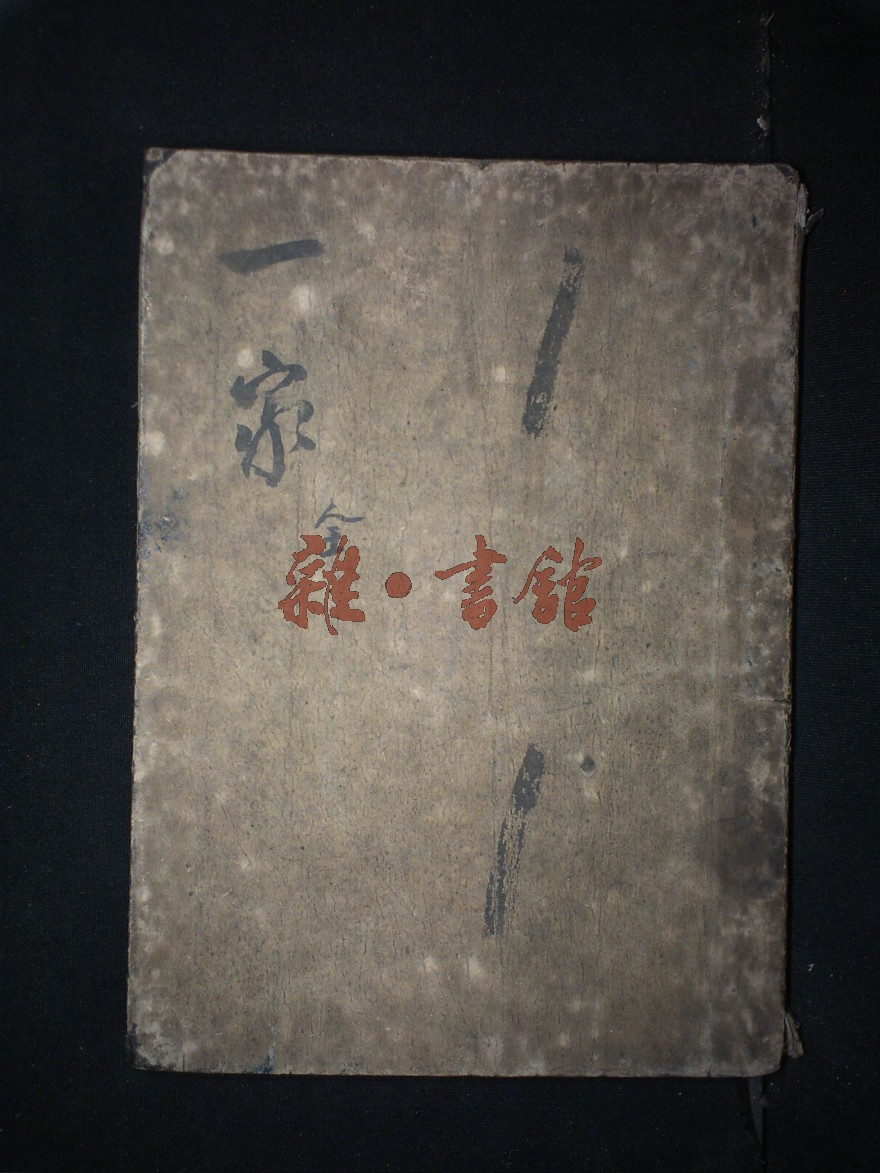 一家
全
雜·書館